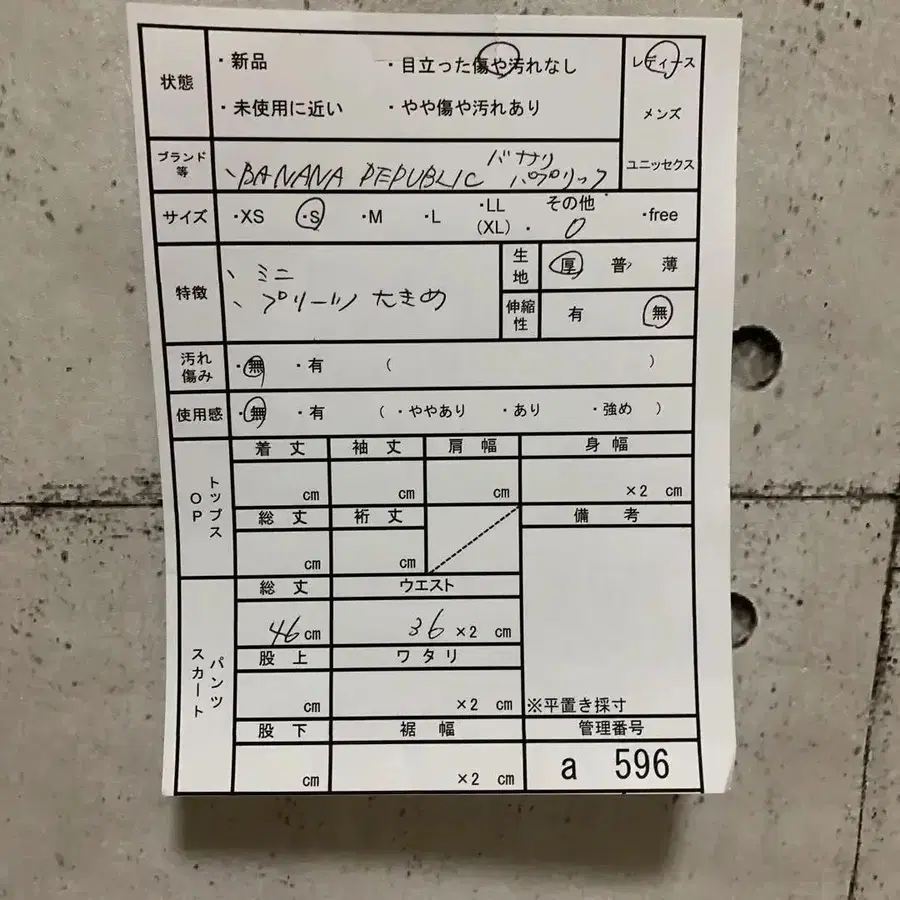 状態
・新品 ・目立った傷や汚れなし
・未使用に近い ・やや傷や汚れあり
レディース
メンズ
ユニセックス
ブランド等
BANANA REPUBLIC バナナ
サイズ ・XS ・S ・M ・L ・LL (XL) ・その他 0 ・free
特徴
、ミニ
、プリーツ大きめ
生地 厚 普 薄
伸縮性 有 無
汚れ傷み ・無 ・有 ( )
使用感 ・無 ・有 ( ・ややあり ・あり ・強め )
トップス OP
着丈 袖丈 肩幅 身幅
cm cm cm ×2 cm
総丈 裄丈 備考
cm cm
パンツ スカート
総丈 ウエスト
46cm 36 ×2 cm
股上 ワタリ
cm ×2 cm ※平置き採寸
股下 裾幅 管理番号
cm ×2 cm a 596